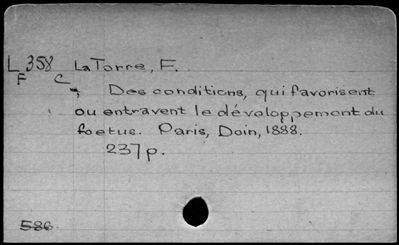 L 358 La Torre, F.
F C
Des conditions, qui favorisent
ou entravent le dévoloppement du
foetus. Paris, Doin, 1888.
237 p.
586